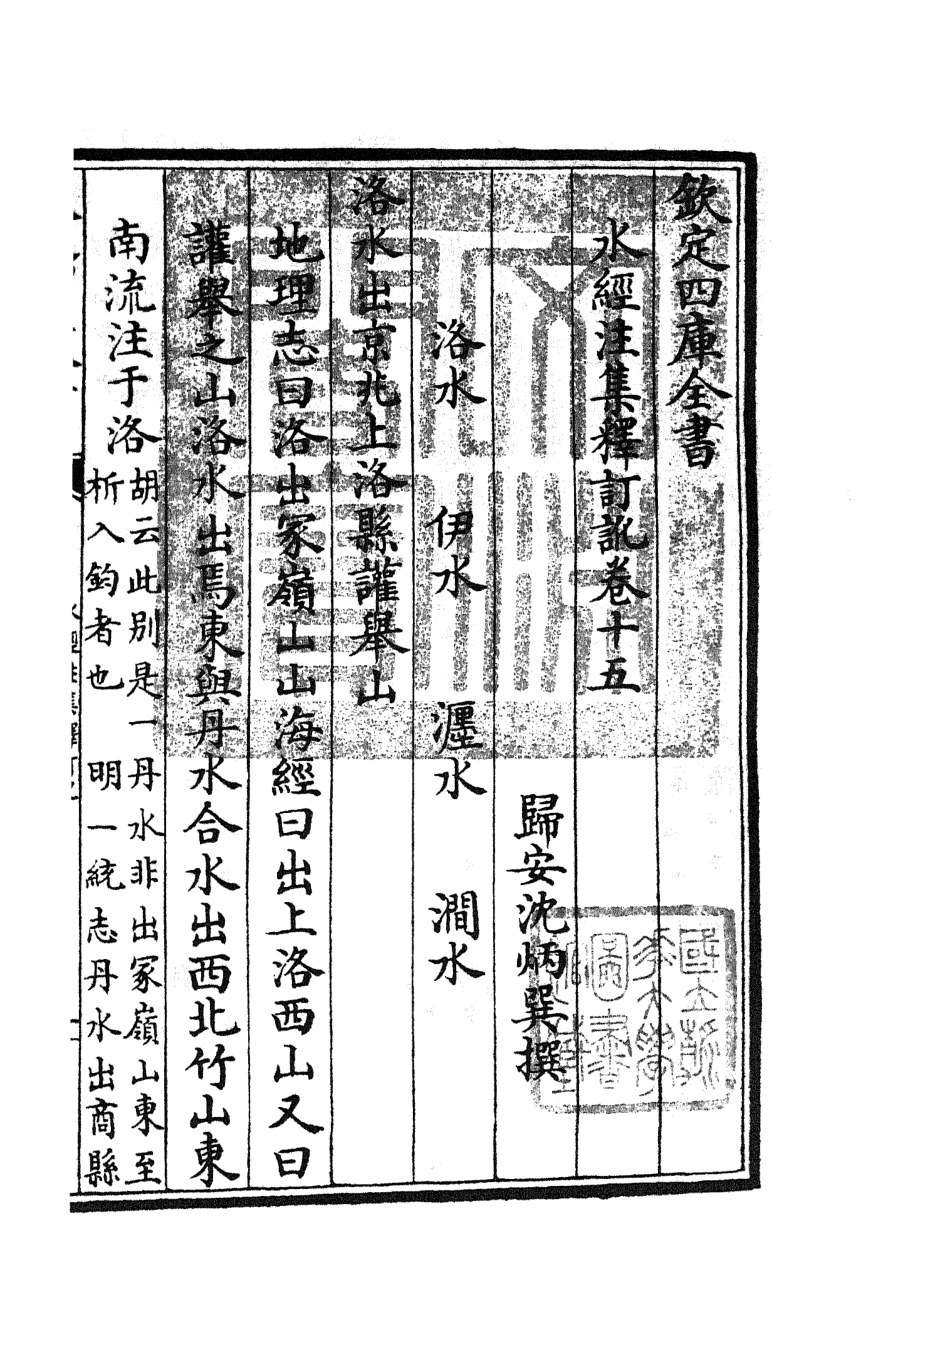 欽定四庫全書
水經注集釋訂訛卷十五
歸安沈炳巽撰
洛水　伊水　瀍水　澗水
洛水出京兆上洛縣讙舉山
地理志曰洛出冢嶺山山海經曰出上洛西山又曰
讙舉之山洛水出焉東與丹水合水出西北竹山東
南流注于洛胡云此别是一丹水非出冢嶺山東至
析入鈞者也　明一統志丹水出商縣